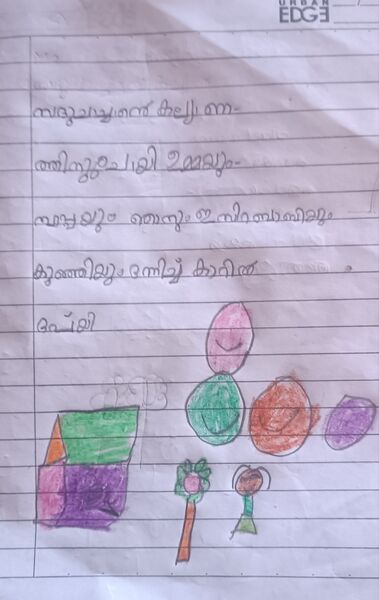 URBAN
EDGE
സദുചാച്ചാന്റെ കല്യാണ-
ത്തിനുപോയി ഉമ്മയും
ബപ്പയും ഞാനും
കുഞ്ഞിയും ഒന്നിച്ച് കാറിൽ
പോയി